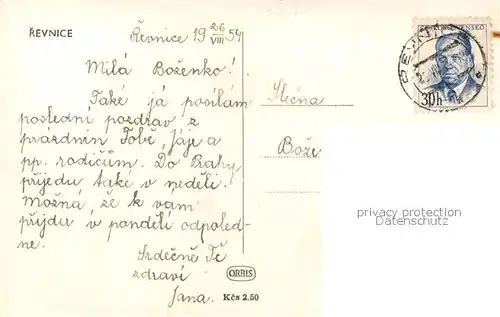 ŘEVNICE
Řevnice 19 26/VIII 54
Milá Boženko!
Také já posílám
poslední pozdrav z
prázdnin Tobě, Jáje a
pp. rodičům. Do Prahy
přijedu také v neděli.
Možná, že k vam
přijdu v pondělí odpoled-
ne.
Srdečně Tě
zdraví
Jana.
ORBIS
Kčs 2.50
Slečna
Bože
30h
privacy protection
Datenschutz